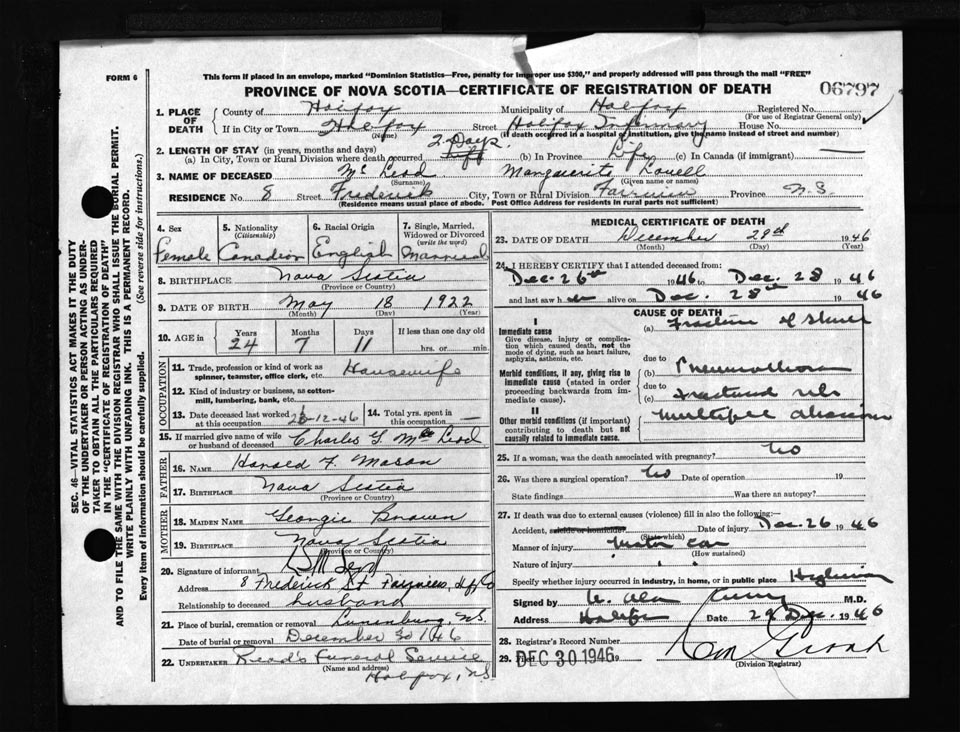 FORM 6
This form if placed in an envelope, marked "Dominion Statistics—Free, penalty for improper use $300," and properly addressed will pass through the mail "FREE"
PROVINCE OF NOVA SCOTIA—CERTIFICATE OF REGISTRATION OF DEATH
06797
1. PLACE OF DEATH
County of Halifax Municipality of Halifax Registered No.
(For use of Registrar General only)
If in City or Town Halifax Street Halifax Infirmary House No.
(If death occurred in a hospital or institution, give the name instead of street and number)
2. LENGTH OF STAY (in years, months and days)
(a) In City, Town or Rural Division where death occurred 2 Days (b) In Province Life (c) In Canada (if immigrant)
3. NAME OF DECEASED McLeod Marguerite Lovell
(Surname) (Given name or names)
RESIDENCE No. 8 Street Frederick City, Town or Rural Division Fairview Province N.S.
(Residence means usual place of abode. Post Office Address for residents in rural parts not sufficient)
4. Sex Female
5. Nationality (Citizenship) Canadian
6. Racial Origin English
7. Single, Married, Widowed or Divorced (write the word) Married
8. BIRTHPLACE Nova Scotia
(Province or Country)
9. DATE OF BIRTH May 18 1922
(Month) (Day) (Year)
10. AGE in Years 24 Months 7 Days 11 If less than one day old
hrs. or min.
OCCUPATION
11. Trade, profession or kind of work as spinner, teamster, office clerk, etc. Housewife
12. Kind of industry or business, as cotton-mill, lumbering, bank, etc.
13. Date deceased last worked at this occupation 26-12-46
14. Total yrs. spent in this occupation —
15. If married give name of wife or husband of deceased Charles McLeod
FATHER
16. NAME Harold F. Mason
17. BIRTHPLACE Nova Scotia
(Province or Country)
MOTHER
18. MAIDEN NAME Georgie Brown
19. BIRTHPLACE Nova Scotia
(Province or Country)
20. Signature of informant
Address 8 Frederick St Fairview, Hfx Co
Relationship to deceased husband
21. Place of burial, cremation or removal Lunenburg, N.S.
Date of burial or removal December 30 1946
22. UNDERTAKER Funeral Service
(Name and address)
Halifax, N.S.
MEDICAL CERTIFICATE OF DEATH
23. DATE OF DEATH December 29th 1946
(Month) (Day) (Year)
24. I HEREBY CERTIFY that I attended deceased from:
Dec. 26th 1946 to Dec. 28 1946
and last saw her alive on Dec. 28th 1946
CAUSE OF DEATH
I
Immediate cause
Give disease, injury or complication which caused death, not the mode of dying, such as heart failure, asphyxia, asthenia, etc.
(a) Fracture of Skull
due to
Morbid conditions, if any, giving rise to immediate cause (stated in order proceeding backwards from immediate cause).
(b) Pneumothorax
due to
(c) Fractured ribs
II
Other morbid conditions (if important) contributing to death but not causally related to immediate cause.
multiple abrasions
25. If a woman, was the death associated with pregnancy? No
26. Was there a surgical operation? No Date of operation 19
State findings Was there an autopsy?
27. If death was due to external causes (violence) fill in also the following:—
Accident, suicide or homicide (State which) Date of injury Dec. 26 1946
Manner of injury Motor car
(How sustained)
Nature of injury " "
Specify whether injury occurred in industry, in home, or in public place Highway
Signed by M.D.
Address Halifax Date 29 Dec. 1946
28. Registrar's Record Number
29. Filed DEC 30 1946 19
(Division Registrar)
SEC. 46—VITAL STATISTICS ACT MAKES IT THE DUTY
OF THE UNDERTAKER OR PERSON ACTING AS UNDERTAKER
TO OBTAIN ALL THE PARTICULARS REQUIRED
IN THE "CERTIFICATE OF REGISTRATION OF DEATH"
AND TO FILE THE SAME WITH THE DIVISION REGISTRAR WHO SHALL ISSUE THE BURIAL PERMIT.
WRITE PLAINLY WITH UNFADING INK. THIS IS A PERMANENT RECORD.
Every item of information should be carefully supplied. (See reverse side for instructions.)